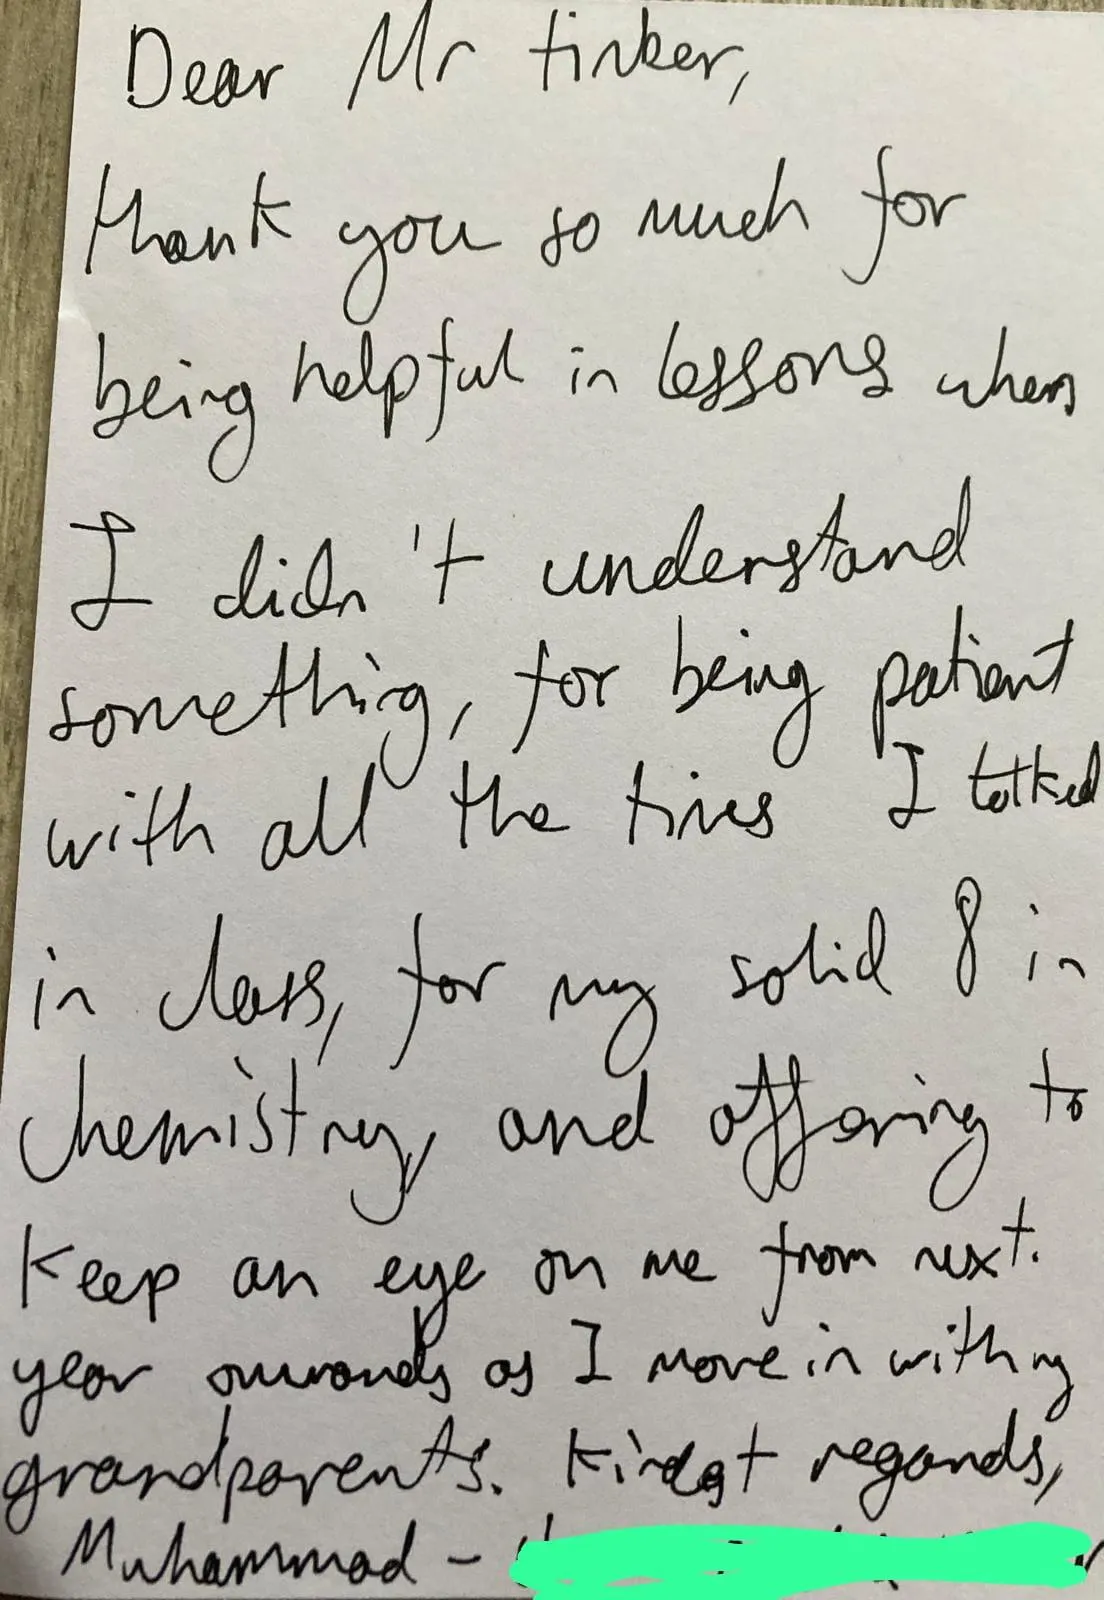 Dear Mr tinker,
thank you so much for
being helpful in lessons when
I didn't understand
something, for being patient
with all the times I talked
in class, for my solid 8 in
chemistry, and offering to
keep an eye on me from next.
year onwards as I move in with my
grandparents. Kindest regards,
Muhammad -